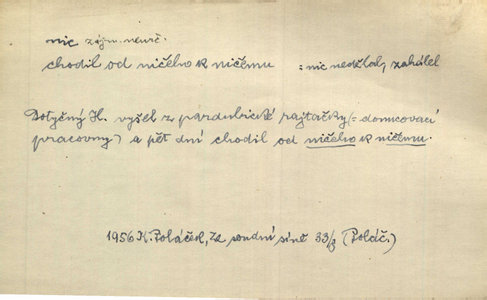 nic zájm. neurč.
chodil od ničeho k ničemu : nic nedělal, zahálel
Dotyčný H. vyšel z pardubické rajtačky (= donucovací
pracovny) a pět dní chodil od ničeho k ničemu.
1956 K. Poláček, Ze soudní síně 33/3 (Poláč.)